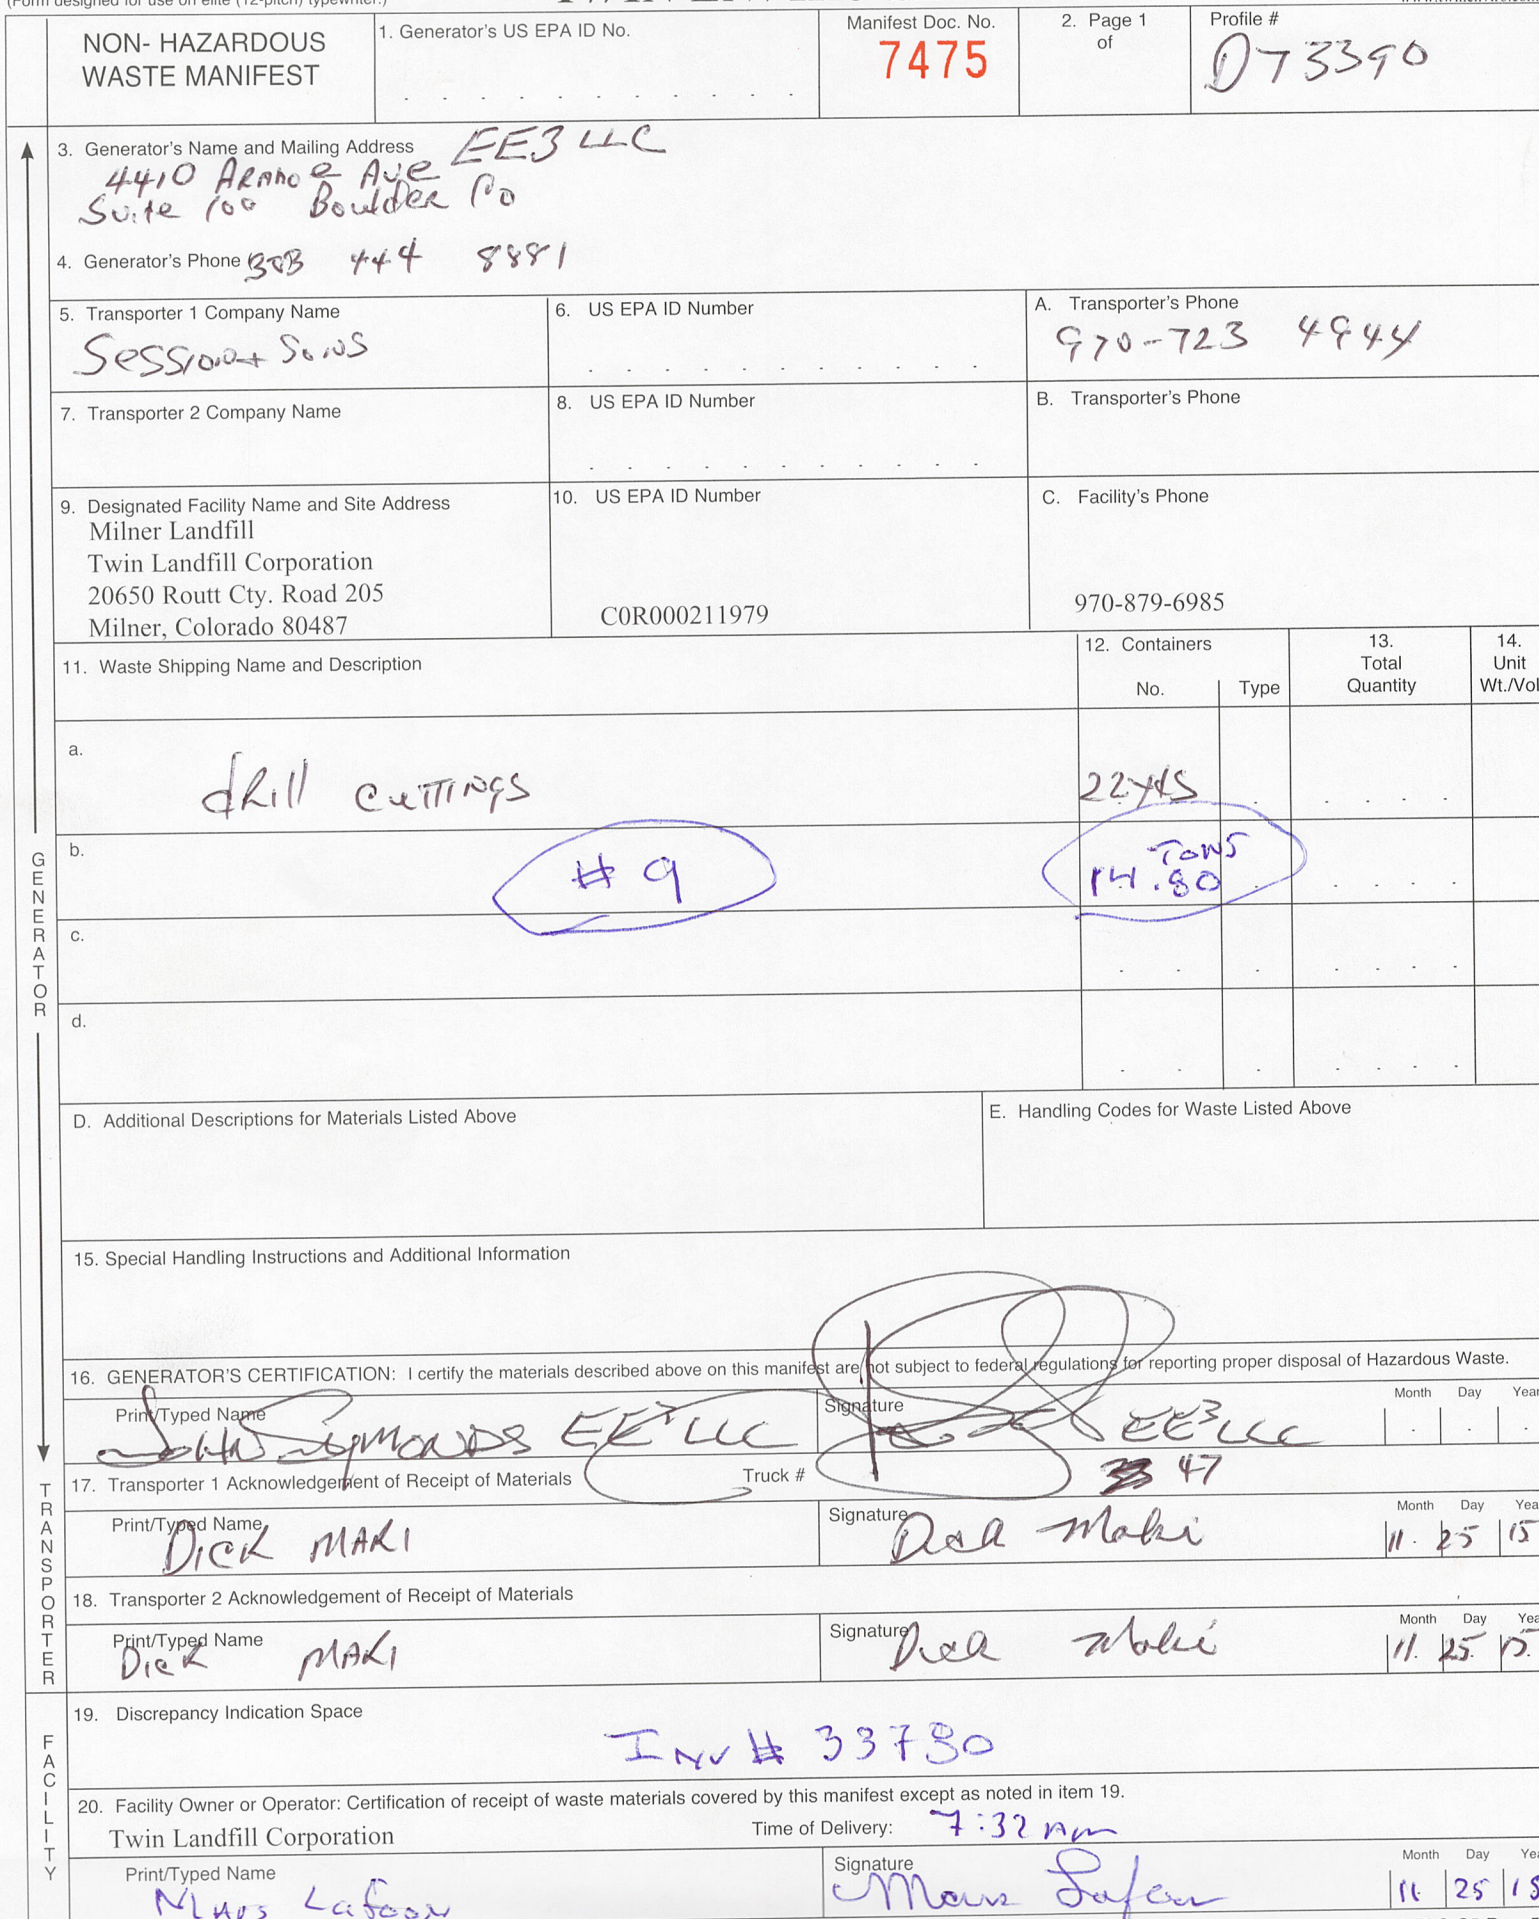 (Form designed for use on elite (12-pitch) typewriter.)
NON- HAZARDOUS
WASTE MANIFEST
1. Generator's US EPA ID No.
Manifest Doc. No.
7475
2. Page 1
of
Profile #
D73390
3. Generator's Name and Mailing Address EE3 LLC
4410 Arapahoe Ave
Suite 100 Boulder Co
4. Generator's Phone 303 444 8881
5. Transporter 1 Company Name
6. US EPA ID Number
A. Transporter's Phone
Sons
970-723 4944
7. Transporter 2 Company Name
8. US EPA ID Number
B. Transporter's Phone
9. Designated Facility Name and Site Address
10. US EPA ID Number
C. Facility's Phone
Milner Landfill
Twin Landfill Corporation
20650 Routt Cty. Road 205
Milner, Colorado 80487
C0R000211979
970-879-6985
11. Waste Shipping Name and Description
12. Containers
No. Type
13.
Total
Quantity
14.
Unit
Wt./Vol
a.
drill cuttings
22 yds
b.
# 9
Tons
14.80
c.
d.
GENERATOR
D. Additional Descriptions for Materials Listed Above
E. Handling Codes for Waste Listed Above
15. Special Handling Instructions and Additional Information
16. GENERATOR'S CERTIFICATION: I certify the materials described above on this manifest are not subject to federal regulations for reporting proper disposal of Hazardous Waste.
Print/Typed Name
Signature
Month Day Year
John Symonds EE3 LLC
EE3 LLC
17. Transporter 1 Acknowledgement of Receipt of Materials
Truck #
47
Print/Typed Name
Signature
Month Day Yea
Dick MAKI
Dick Maki
11. 25 15
18. Transporter 2 Acknowledgement of Receipt of Materials
Print/Typed Name
Signature
Month Day Yea
Dick MAKI
Dick Maki
11. 25. 15.
TRANSPORTER
19. Discrepancy Indication Space
Inv # 33780
20. Facility Owner or Operator: Certification of receipt of waste materials covered by this manifest except as noted in item 19.
Twin Landfill Corporation
Time of Delivery: 7:32 Am
Print/Typed Name
Signature
Month Day Yea
11 25 15
FACILITY